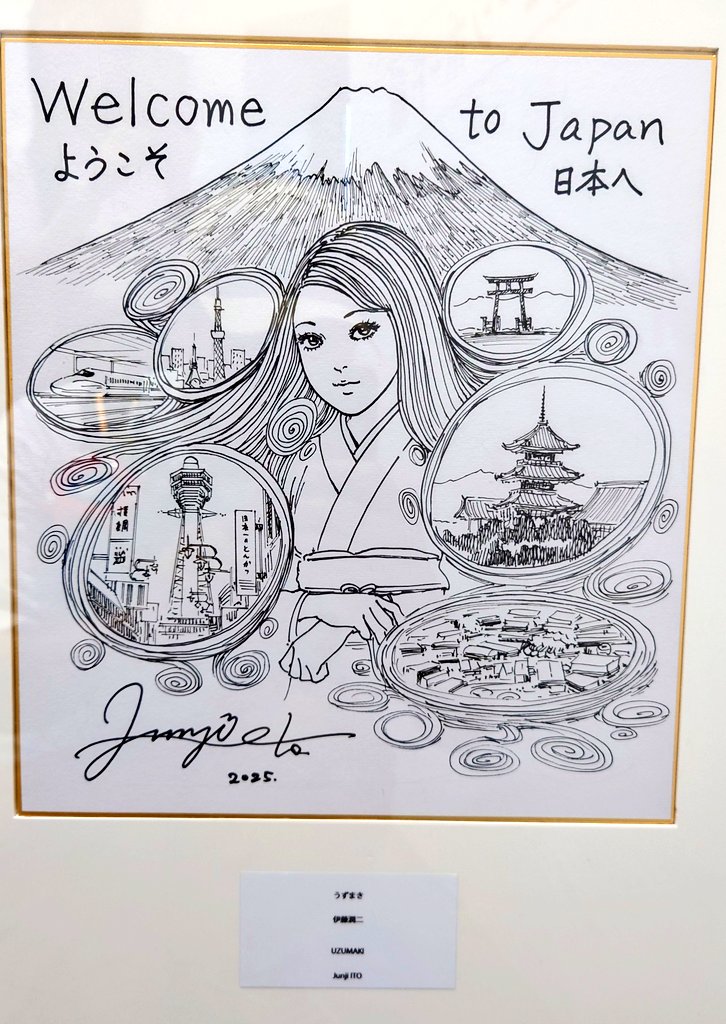 Welcome to Japan
ようこそ 日本へ
日本一のとんかつ
Junji Ito
2025.
うずまき
伊藤潤二
UZUMAKI
Junji ITO